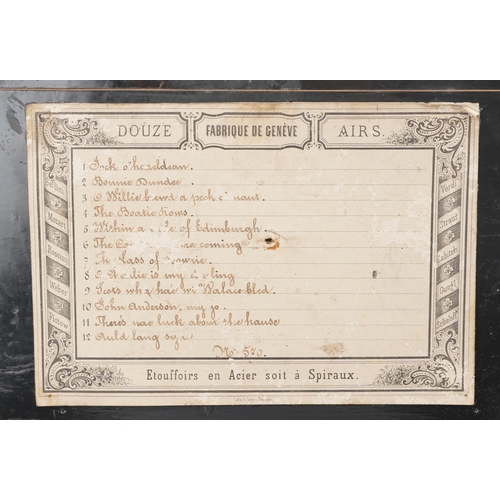 DOUZE FABRIQUE DE GENÈVE AIRS.
1 Jock o'hazeldean.
2 Bonnie Dundee.
3 O Willie b ew'd a peck o' maut.
4 The Boatie Rows.
5 Within a of Edimburgh.
6 The coming
7 The Lass of
8 is my
9 Scots wha hae wi Walace bled.
10 John Anderson, my jo.
11 There's nae luck about the hause
12 Auld lang syne
No 520.
Mozart
Rossini
Weber
Flotow
Verdi
Strauss
Gungl
Schubert
Etouffoirs en Acier soit à Spiraux.